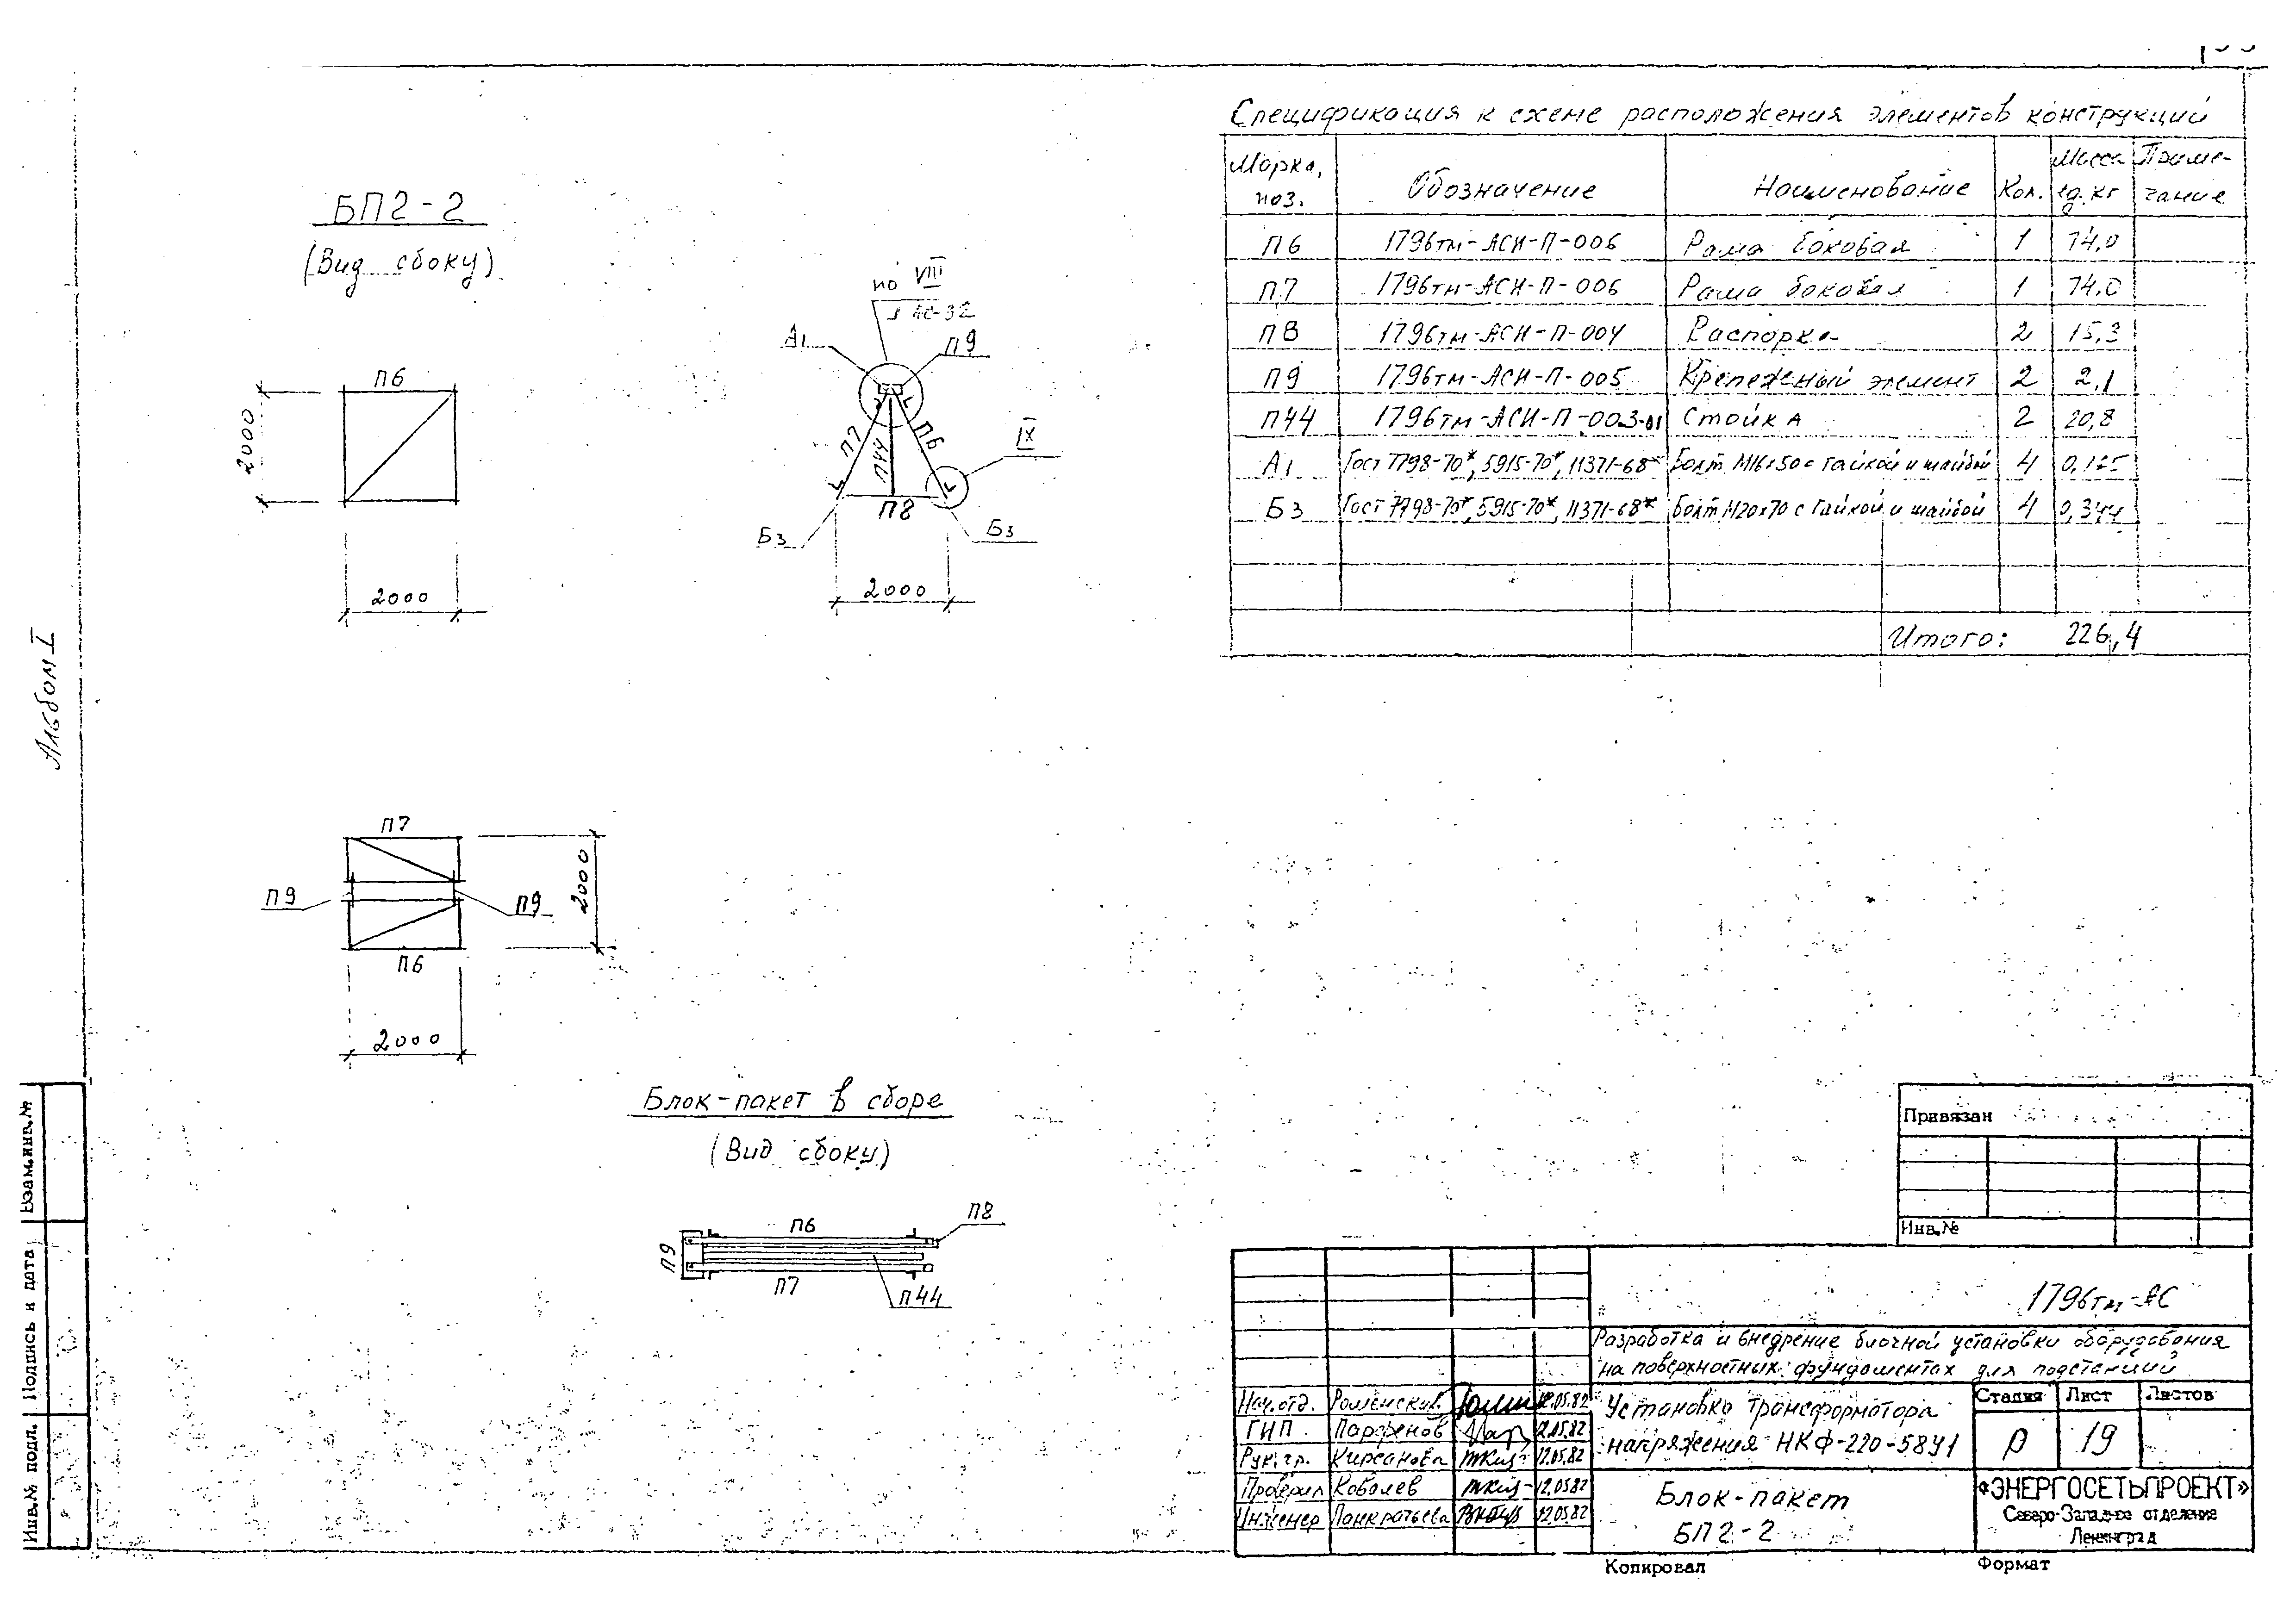 Спецификация к схеме расположения элементов конструкций
Марка, поз. Обозначение Наименование Кол. Масса ед. кг Примечание
П6 1796тм-АСИ-П-006 Рама боковая 1 74,0
П7 1796тм-АСИ-П-006 Рама боковая 1 74,0
П8 1796тм-АСИ-П-004 Распорка 2 15,3
П9 1796тм-АСИ-П-005 Крепежный элемент 2 2,1
П44 1796тм-АСИ-П-003-01 Стойка 2 20,8
А1 Гост 7798-70*, 5915-70*, 11371-68* Болт М16х50 с гайкой и шайбой 4
Б3 Гост 7798-70*, 5915-70*, 11371-68* Болт М20х70 с гайкой и шайбой 4 0,344
Итого: 226,4
БП2-2
(Вид сбоку)
П6
2000
2000
по VIII
А1
П9
П7
П44
П6
IX
П8
Б3
Б3
2000
Альбом I
П7
П9
П9
2000
П6
2000
Блок-пакет в сборе
(Вид сбоку)
П6
П8
П9
П7
П44
Взам.инв.№
Подпись и дата
Инв.№ подл.
Привязан
Инв.№
1796тм-АС
Разработка и внедрение блочной установки оборудования
на поверхностных фундаментах для подстанций
Нач.отд. 12.05.82
ГИП Парфенов 12.05.82
Рук.гр. Кирсанова 12.05.82
Проверил Ковалев 12.05.82
Инженер Панкратьева 12.05.82
Установка трансформатора
напряжения НКФ-220-58У1
Стадия Лист Листов
Р 19
Блок-пакет
БП2-2
«ЭНЕРГОСЕТЬПРОЕКТ»
Северо-Западное отделение
Ленинград
Копировал Формат